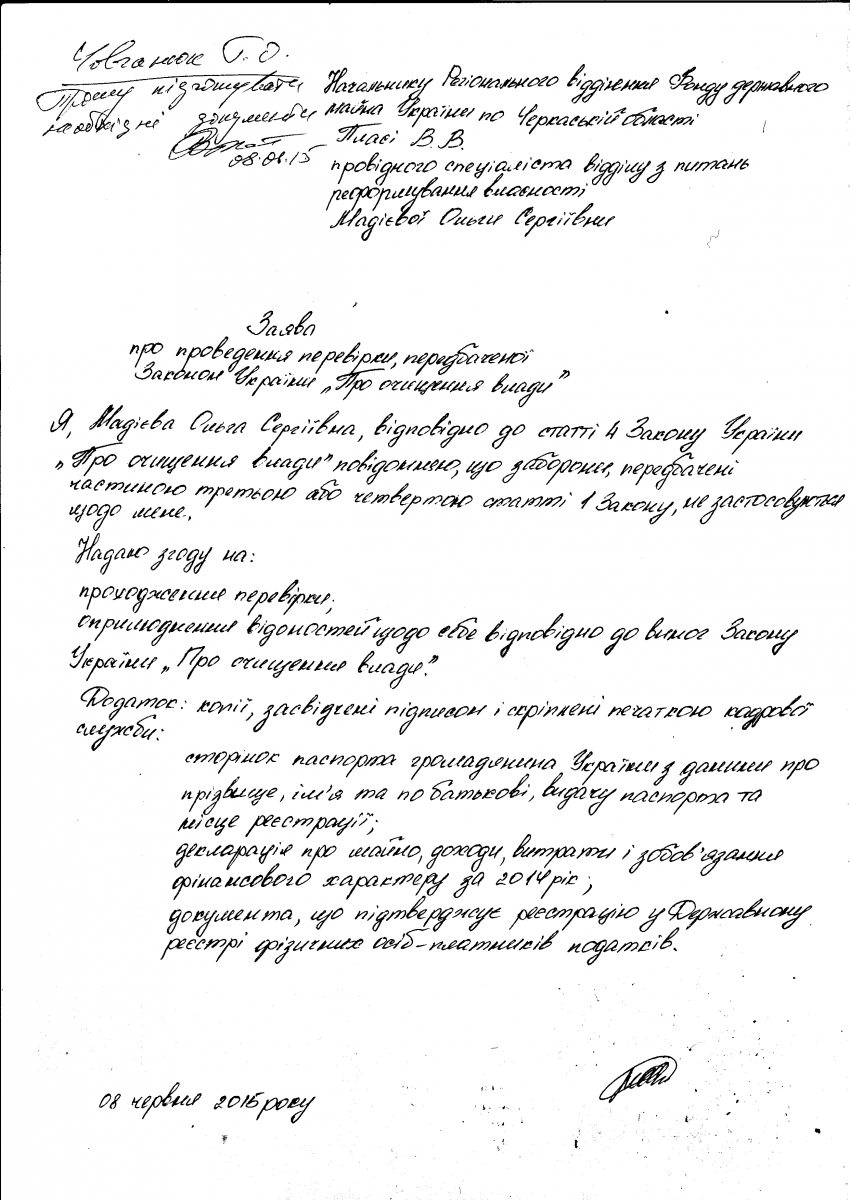 Човганюк Г. О.
Прошу підготувати
необхідні документи
08.06.15
Начальнику Регіонального відділення Фонду державного
майна України по Черкаській області
Плаєі В. В.
провідного спеціаліста відділу з питань
реформування власності
Мадієвої Ольги Сергіївни
Заява
про проведення перевірки, передбаченої
Законом України „Про очищення влади”
Я, Мадієва Ольга Сергіївна, відповідно до статті 4 Закону України
„Про очищення влади” повідомляю, що заборони, передбачені
частиною третьою або четвертою статті 1 Закону, не застосовуються
щодо мене.
Надаю згоду на:
проходження перевірки;
оприлюднення відомостей щодо себе відповідно до вимог Закону
України „Про очищення влади”.
Додаток: копії, засвідчені підписом і скріплені печаткою кадрової
служби:
сторінок паспорта громадянина України з даними про
прізвище, ім'я та по батькові, видачу паспорта та
місце реєстрації;
декларація про майно, доходи, витрати і зобов'язання
фінансового характеру за 2014 рік;
документа, що підтверджує реєстрацію у Державному
реєстрі фізичних осіб-платників податків.
08 червня 2015 року